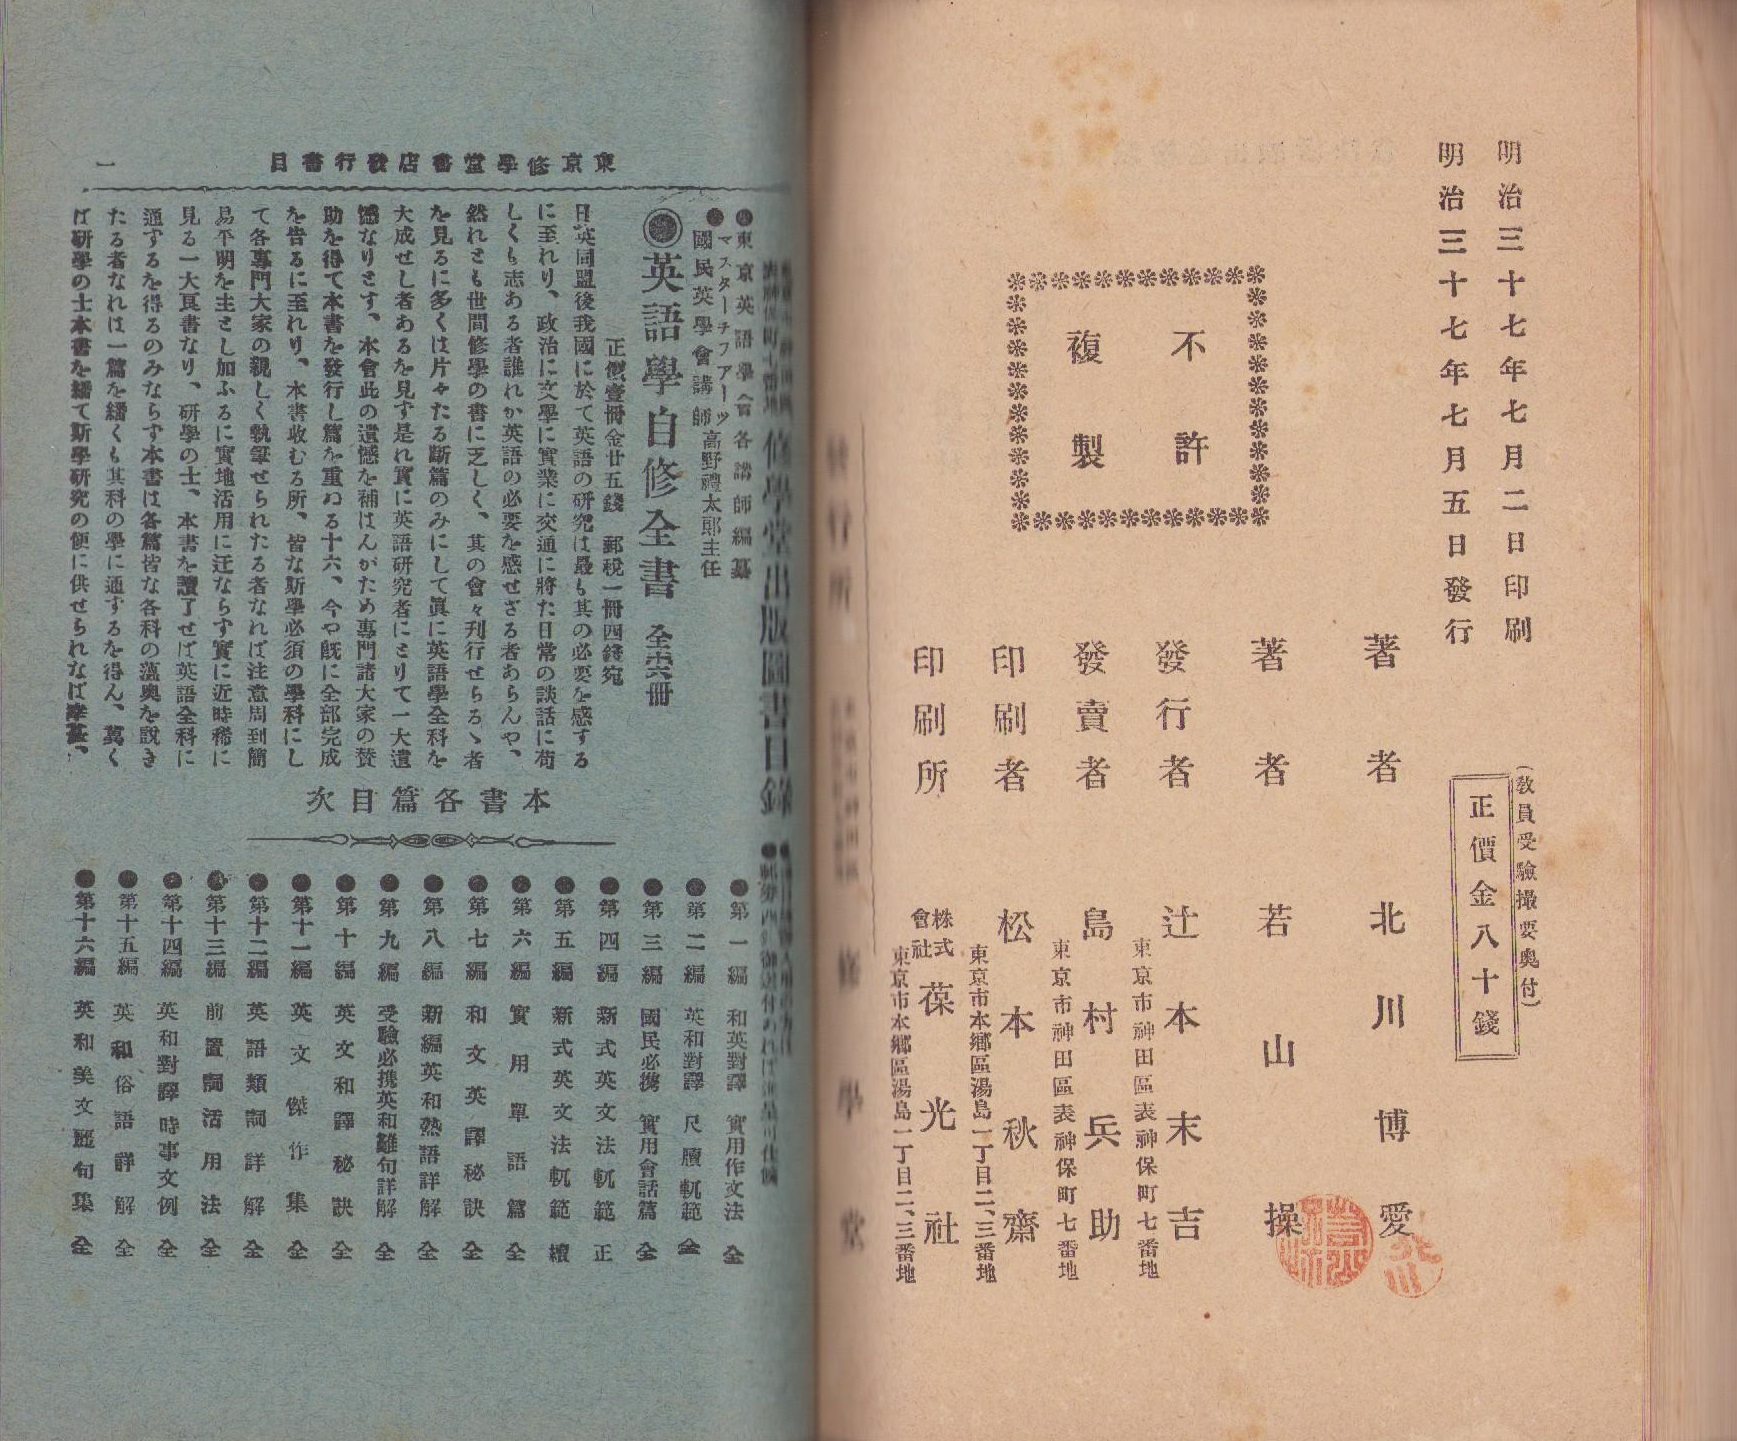 明治三十七年七月二日印刷
明治三十七年七月五日發行
(教員受驗撮要奧付)
正價金八十錢
不許
複製
著者 北川博愛
著者 若山操
發行者 辻本末吉
東京市神田區表神保町七番地
發賣者 島村兵助
東京市神田區表神保町七番地
印刷者 松本秋齋
東京市本鄉區湯島一丁目二、三番地
印刷所 株式會社 葆光社
東京市本鄉區湯島一丁目二、三番地
發行所
修學堂
東京修學堂書店發行書目
一
修學堂出版圖書目錄
●東京英語學會各講師編纂
●マスターヲフアーツ
國民英學會講師 高野禮太郎主任
◉英語學自修全書 全六冊
正價壹冊金廿五錢 郵稅一冊四錢宛
日英同盟後我國に於て英語の研究は最も其の必要を感する
に至れり、政治に文學に實業に交通に將た日常の談話に苟
しくも志ある者誰れか英語の必要を感せざる者あらんや、
然れとも世間修學の書に乏しく、其の會々刊行せらるゝ者
を見るに多くは片々たる斷篇のみにして眞に英語學全科を
大成せし者あるを見す是れ實に英語研究者にとりて一大遺
憾なりとす、本會此の遺憾を補はんがため專門諸大家の贊
助を得て本書を發行し篇を重ぬる十六、今や既に全部完成
を告るに至れり、本書收むる所、皆な斯學必須の學科にし
て各專門大家の親しく執筆せられたる者なれば注意周到簡
易平明を主とし加ふるに實地活用に迂ならず實に近時稀に
見る一大良書なり、研學の士、本書を讀了せば英語全科に
通するを得るのみならず本書は各篇皆な各科の蘊奧を說き
たる者なれは一篇を繙くも其科の學に通するを得ん、冀く
ば研學の士本書を繙て斯學研究の便に供せられなば幸甚、
本書各篇目次
●第一編 和英對譯 實用作文法 全
●第二編 英和對譯 尺牘軌範 全
●第三編 國民必携 實用會話篇 全
●第四編 新式英文法軌範 正
●第五編 新式英文法軌範 續
●第六編 實用單語篇 全
●第七編 和文英譯秘訣 全
●第八編 新編英和熟語詳解 全
●第九編 受驗必携英和難句詳解 全
●第十編 英文和譯秘訣 全
●第十一編 英文傑作集 全
●第十二編 英語類詞詳解 全
●第十三編 前置詞活用法 全
●第十四編 英和對譯時事文例 全
●第十五編 英和俗語詳解 全
●第十六編 英和美文麗句集 全